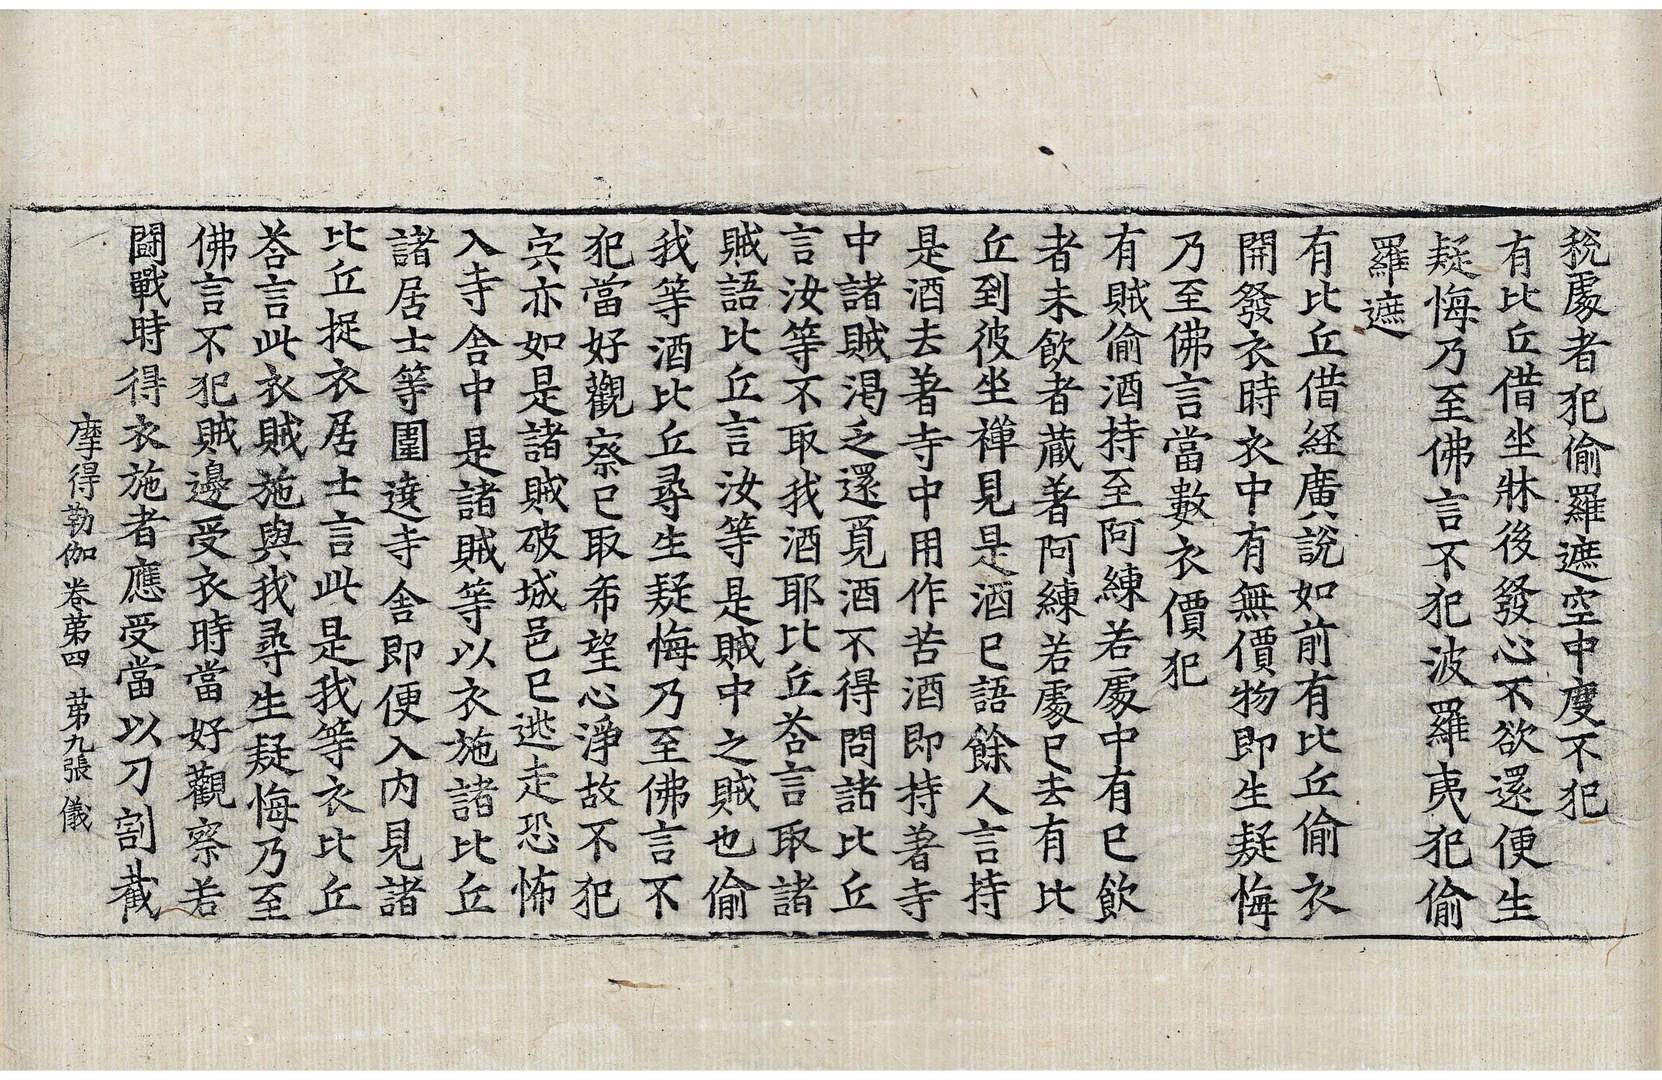 稅處者犯偷羅遮空中度不犯
有比丘借坐牀後發心不欲還便生
疑悔乃至佛言不犯波羅夷犯偷
羅遮
有比丘借経廣說如前有比丘偷衣
開發衣時衣中有無價物即生疑悔
乃至佛言當數衣價犯
有賊偷酒持至阿練若處中有已飲
者未飲者蔵著阿練若處已去有比
丘到彼坐禪見是酒已語餘人言持
是酒去著寺中用作苦酒即持著寺
中諸賊渴乏還覓酒不得問諸比丘
言汝等不取我酒耶比丘荅言取諸
賊語比丘言汝等是賊中之賊也偷
我等酒比丘尋生疑悔乃至佛言不
犯當好觀察已取希望心淨故不犯
宍亦如是諸賊破城邑已逃走恐怖
入寺舍中是諸賊等以衣施諸比丘
諸居士等圍遶寺舍即便入內見諸
比丘捉衣居士言此是我等衣比丘
荅言此衣賊施與我尋生疑悔乃至
佛言不犯賊邊受衣時當好觀察若
鬪戰時得衣施者應受當以刀割截
摩得勒伽卷苐四 苐九張 儀